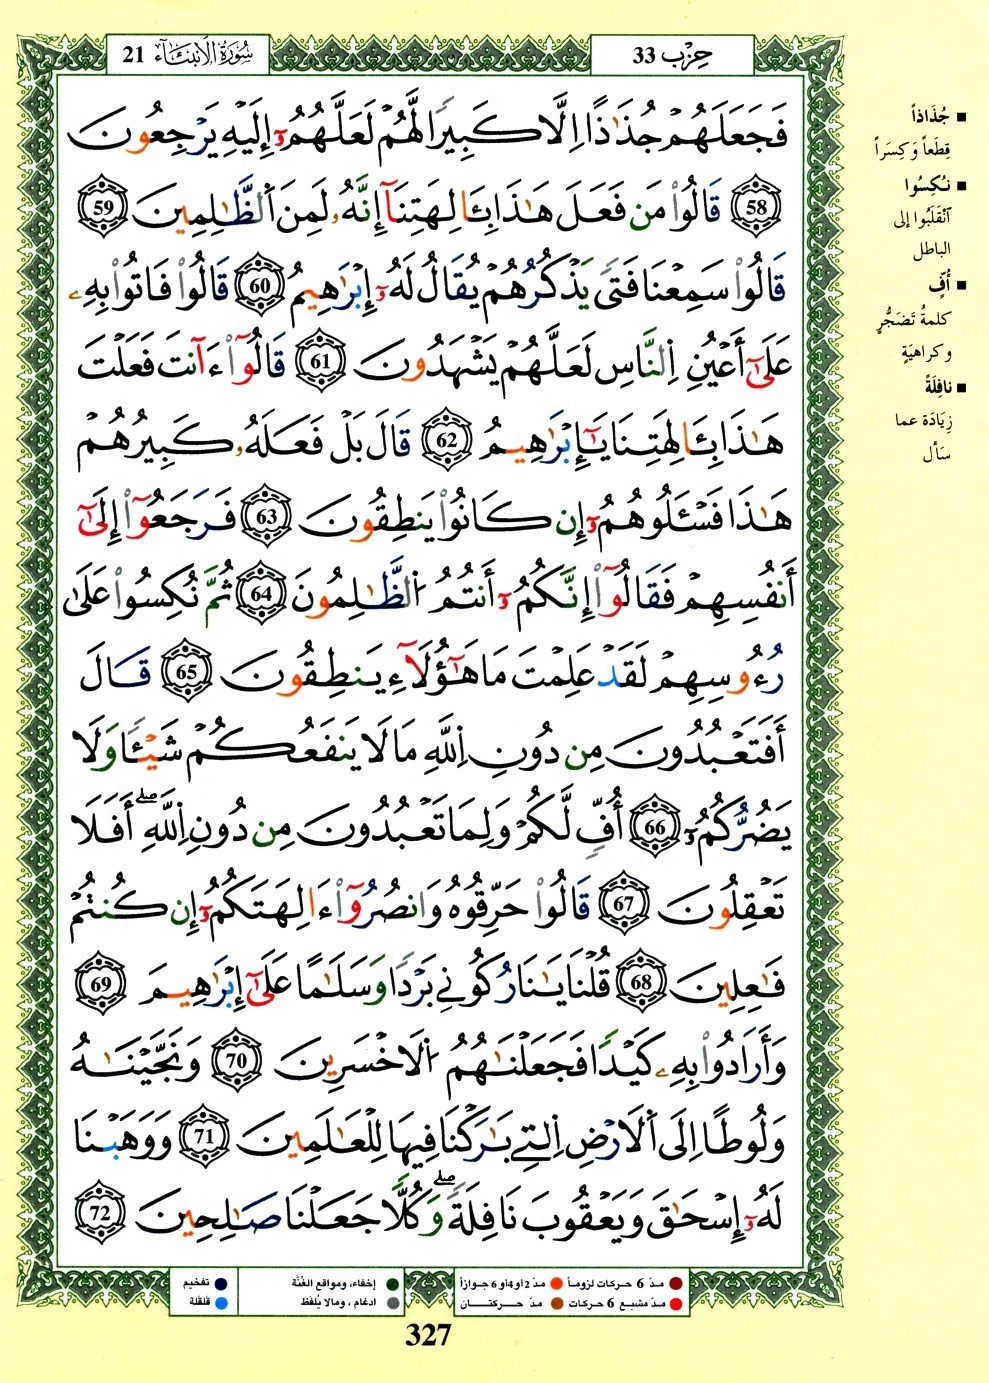 سُورَةُ الأَنبِيَاءِ 21
حِزْب 33
فَجَعَلَهُمْ جُذَٰذًا اِلَّا كَبِيرًا لَّهُمْ لَعَلَّهُمُۥٓ إِلَيْهِ يَرْجِعُونَ
58 قَالُواْ مَن فَعَلَ هَٰذَا بِـَٔالِهَتِنَآ إِنَّهُۥ لَمِنَ اَ۬لظَّٰلِمِينَ 59
قَالُواْ سَمِعْنَا فَتىً يَذْكُرُهُمْ يُقَالُ لَهُۥٓ إِبْرَٰهِيمُ 60 قَالُواْ فَاتُواْ بِهِۦ
عَلَىٰٓ أَعْيُنِ اِ۬لنَّاسِ لَعَلَّهُمْ يَشْهَدُونَ 61 قَالُوٓاْ ءَآنتَ فَعَلْتَ
هَٰذَا بِـَٔالِهَتِنَا يَٰٓإِبْرَٰهِيمُ 62 قَالَ بَلْ فَعَلَهُۥ كَبِيرُهُمْ
هَٰذَا فَسْـَٔلُوهُمُۥٓ إِن كَانُواْ يَنطِقُونَ 63 فَرَجَعُوٓاْ إِلَىٰٓ
أَنفُسِهِمْ فَقَالُوٓاْ إِنَّكُمُۥٓ أَنتُمُ اُ۬لظَّٰلِمُونَ 64 ثُمَّ نُكِسُواْ عَلَىٰ
رُءُوسِهِمْ لَقَدْ عَلِمْتَ مَا هَٰٓؤُلَآءِ يَنطِقُونَ 65 قَالَ
أَفَتَعْبُدُونَ مِن دُونِ اِ۬للَّهِ مَا لَا يَنفَعُكُمْ شَيْـٔاً وَلَا
يَضُرُّكُمُۥٓ 66 أُفٍّ لَّكُمْ وَلِمَا تَعْبُدُونَ مِن دُونِ اِ۬للَّهِۖ أَفَلَا
تَعْقِلُونَ 67 قَالُواْ حَرِّقُوهُ وَانصُرُوٓاْ ءَالِهَتَكُمُۥٓ إِن كُنتُمْ
فَٰعِلِينَ 68 قُلْنَا يَٰنَارُ كُونِي بَرْداً وَسَلَٰمًا عَلَىٰٓ إِبْرَٰهِيمَ 69
وَأَرَادُواْ بِهِۦ كَيْداً فَجَعَلْنَٰهُمُ اُ۬لَاخْسَرِينَ 70 وَنَجَّيْنَٰهُ
وَلُوطًا اِلَى اَ۬لَارْضِ اِ۬لتِي بَٰرَكْنَا فِيهَا لِلْعَٰلَمِينَ 71 وَوَهَبْنَا
لَهُۥٓ إِسْحَٰقَ وَيَعْقُوبَ نَافِلَةًۖ وَكُلّاً جَعَلْنَا صَٰلِحِينَ 72
■ جُذَاذاً
قِطَعاً وَكِسَراً
■ نُكِسُوا
انْقَلَبُوا إلى
الباطل
■ أُفٍّ
كلمةُ تَضَجُّرٍ
وكراهيَةٍ
■ نافِلَةً
زِيَادَة عما
سَأل
● مدّ 6 حركات لزوماً ● مدّ 2 أو 4 أو 6 جوازاً
● مدّ مشبع 6 حركات ● مدّ حركتان
● إخفاء، ومواقع الغُنَّة ● تفخيم
● ادغام، ومالا يُلفظ ● قلقلة
327